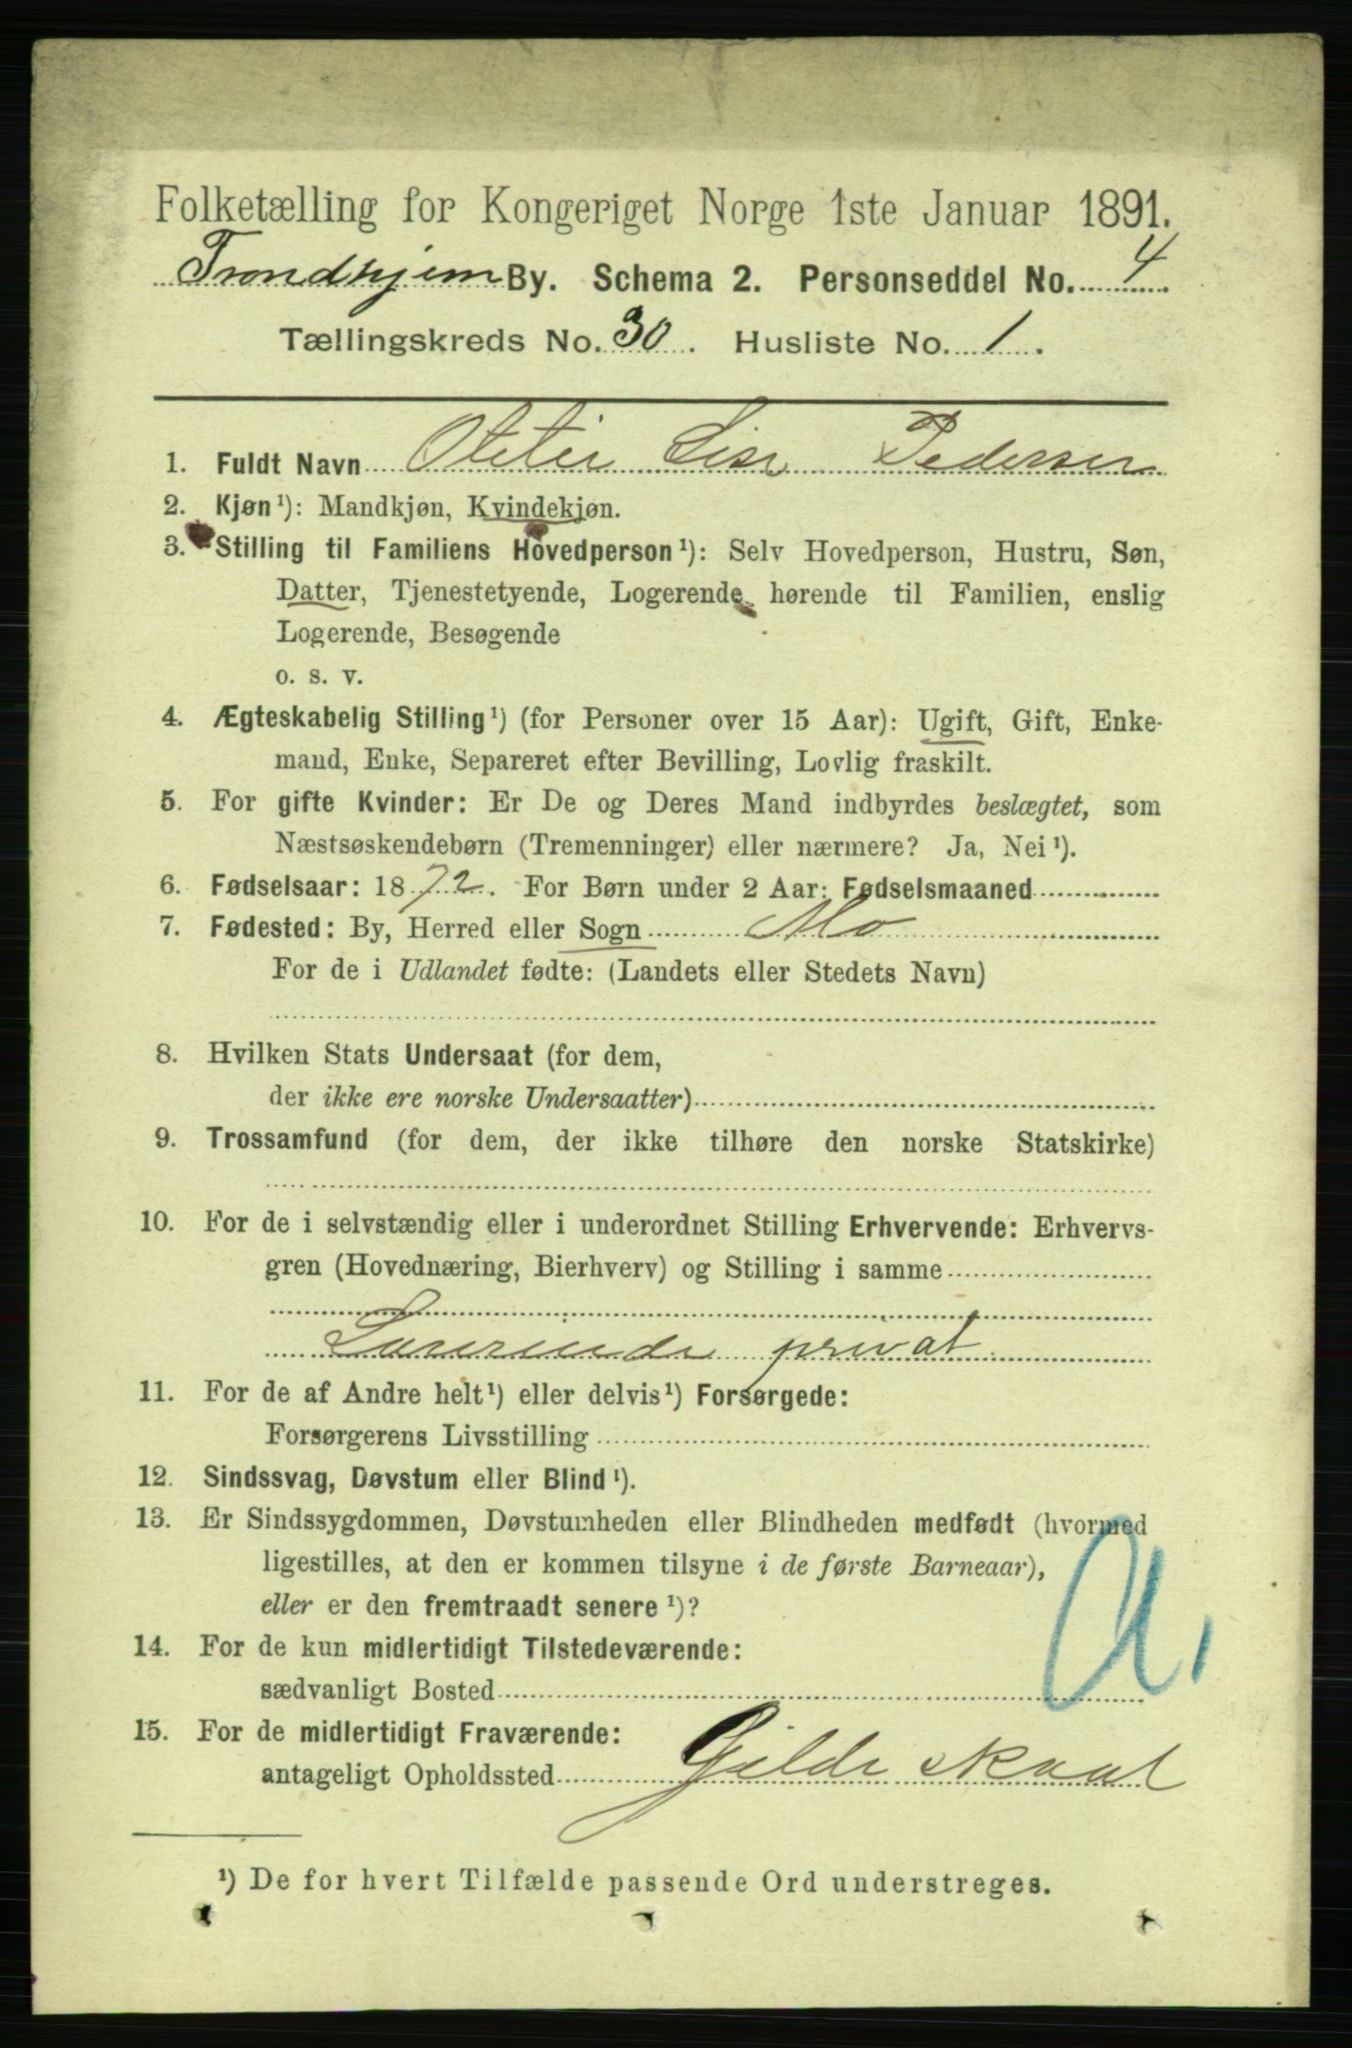 Folketælling for Kongeriget Norge 1ste Januar 1891.
Trondhjem By. Schema 2. Personseddel No. 4
Tællingskreds No. 30. Husliste No. 1.
1. Fuldt Navn Lise Pedersen
2. Kjøn¹): Mandkjøn, Kvindekjøn.
3. Stilling til Familiens Hovedperson¹): Selv Hovedperson, Hustru, Søn,
Datter, Tjenestetyende, Logerende hørende til Familien, enslig
Logerende, Besøgende
o. s. v.
4. Ægteskabelig Stilling¹) (for Personer over 15 Aar): Ugift, Gift, Enke-
mand, Enke, Separeret efter Bevilling, Lovlig fraskilt.
5. For gifte Kvinder: Er De og Deres Mand indbyrdes beslægtet, som
Næstsøskendebørn (Tremenninger) eller nærmere? Ja, Nei¹).
6. Fødselsaar: 1872. For Børn under 2 Aar: Fødselsmaaned
7. Fødested: By, Herred eller Sogn Mo
For de i Udlandet fødte: (Landets eller Stedets Navn)
8. Hvilken Stats Undersaat (for dem,
der ikke ere norske Undersaatter)
9. Trossamfund (for dem, der ikke tilhøre den norske Statskirke)
10. For de i selvstændig eller i underordnet Stilling Erhvervende: Erhvervs-
gren (Hovednæring, Bierhverv) og Stilling i samme
Lærerinde privat
11. For de af Andre helt¹) eller delvis¹) Forsørgede:
Forsørgerens Livsstilling
12. Sindssvag, Døvstum eller Blind¹).
13. Er Sindssygdommen, Døvstumheden eller Blindheden medfødt (hvormed
ligestilles, at den er kommen tilsyne i de første Barneaar),
eller er den fremtraadt senere¹)?
14. For de kun midlertidigt Tilstedeværende:
sædvanligt Bosted
15. For de midlertidigt Fraværende:
antageligt Opholdssted Gildeskaal
¹) De for hvert Tilfælde passende Ord understreges.